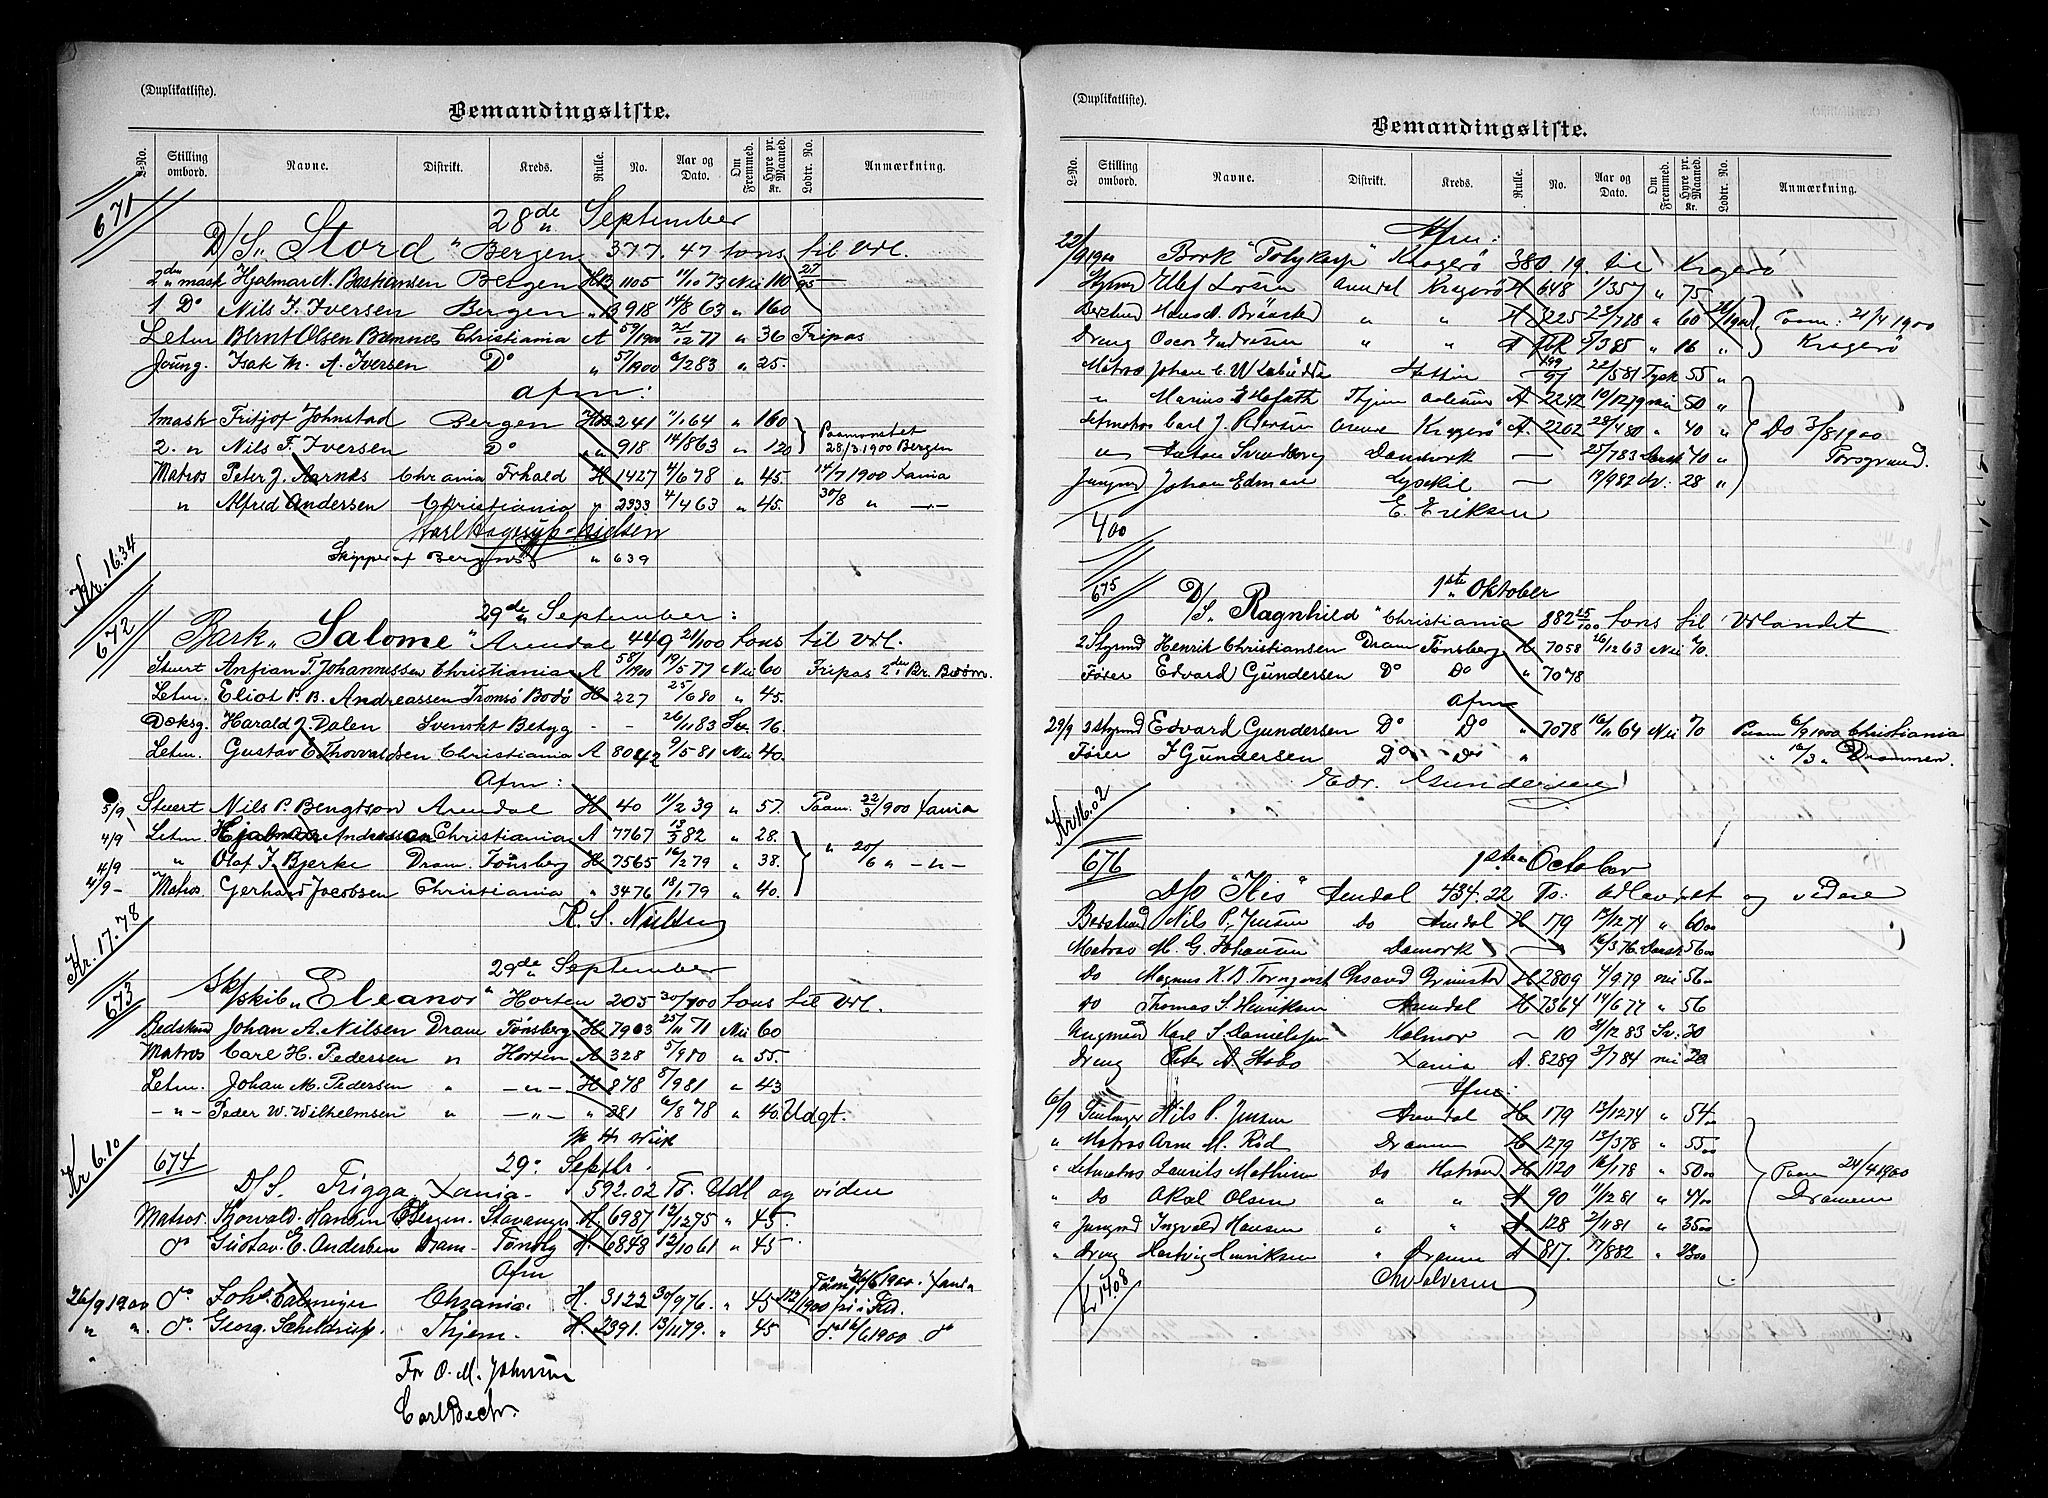 (Duplikatliste).
Bemandingsliste.
L-No. Stilling ombord. Navne. Distrikt. Kreds. Rulle. No. Aar og Dato. Om Fremmed. Hyre pr. Maaned. Kr. Lodtr. No. Anmærkning.
671 28de September
D/S „Stord" Bergen 377.47 tons til Url.
2den mask Hjalmar N. Bastiansen Bergen HB 1105 11/10 73 Nei 110 27/95 —
1 Do Nils J. Iversen Bergen „B 918 14/8 63 „ 160
Letm Bernt Olsen Christiania A 59/1900 21/12 77 „ 36 Fripas
Joung. Isak M. A. Iversen Do „ 57/1900 6/2 83 „ 25.
Afm:
1 mask Fritjof Johnstad Bergen HB 241 1/1 64 „ 160
2. „ Nils F. Iversen Do „ „ 918 14/8 63 „ 120 Paamönstret 28/3 1900 Bergen
Matros Peter J. Aarnes Chrania Frhald H 1427 4/6 78 „ 45. 14/7 1900 Xania
„ Alfred Andersen Christiania „ 2333 4/4 63 „ 45. 30/8 „ —„—
Skipper af Bergens „ 639
Kr. 16.34
672 29de September:
Bark „Salome" Arendal 449 21/100 tons til Url.
Stuert Anfian T. Johannissen Christiania A 58/1900 19/5 77 Nei 60 Fripas 2den Br. Bodøm.
Letm. Eliot P. B. Andreassen Tromsö Bodö H 227 25/6 80 „ 45.
Doksg. Harald J. Dalen Svenskt Betyg - - 26/11 83 Sv. 16.
Letm. Gustav E. Thorvaldsen Christiania A 8042 9/5 81 Nei 40.
Afm:
5/9 Stuert Nils P. Bengtson Arendal H 40 11/2 39 „ 57. Paam. 22/3 1900 Xania
4/9 Letm. Hjalmar Andersen Christiania A 7767 13/3 82 „ 28.
4/9 „ Olaf J. Bjerke Dram. Tönsberg H 7565 16/2 79 „ 38. „ 20/6 „ —„—
4/9 - Matros Gerhard Jacobsen Christiania „ 3476 18/1 79 „ 40.
R. S. Nielsen
Kr. 17.78
673 29de September
Sk/skib „Eleanor" Horten 205 30/100 tons til Url.
Bedstmd Johan A. Nilsen Dram Tönsberg H 7903 25/11 71 Nei 60
Matros Carl H. Pedersen „ Horten A 328 5/9 80 „ 55.
Letm. Johan M. Pedersen „ —„— H 878 5/9 81 „ 43
—„— Peder W. Wilhelmsen „ —„— „ 281 6/8 78 „ 40. Udgt.
Kr 6.10
674 29. Septbr.
D/S. Frigga Xania. 592.02 T. Udl og viden
Matros. Thorvald Hansen Bergen. Stavanger. H 6987 12/12 75 „ 45.
do Gustav E. Andersen Dram Tönsbg H. 6848 12/10 61 „ 45.
Afm
26/9 1900 do Johs. Calmeyer Chrania. H. 3122 30/9 76. „ 45 112/1900 Paam 26/6 1900. Xania
„ „ do Georg. Schildrup. Thjem. H. 2391. 13/11 79. „ 45 do 6/6 1900 do
„
For O. M. Johnsen
Carl Bech.
(Duplikatliste).
Bemandingsliste.
L-No. Stilling ombord. Navne. Distrikt. Kreds. Rulle. No. Aar og Dato. Om Fremmed. Hyre pr. Maaned. Kr. Lodtr. No. Anmærkning.
Afm:
22/9 1900 Bark "Polykarp" Kragerö 380.19. til Kragerö
Ulef Larsen Arendal Kragerö H 648 1/3 57 „ 75
Hans A. „ „ H 3225 „ 60 Paam: 21/4 1900
Dreng Oscar „ „ A 5/3 85 „ 16 „ Kragerö
Matros Johan C. W. Stettin 199/97 22/5 81 Tysk 55 „
„ Marius Thjem A 2242 19/12 79 nei 50 „
Letmatros Carl J. Kragerö A. 2202 28/4 80 „ 40 „ Do 3/8 1900
„ Anton Svendberg Danmark — 25/7 83 Dansk 40 „ Porsgrund.
Jungmd Johan Edman Lysekil — 19/9 82 Sv: 28 „
E. Eriksen
400
675 1ste Oktober
D/S. „Ragnhild" Christiania 882 25/100 tons til Udlandet
2 Stymd Henrik Christiansen Dram Tönsberg H 7058 26/12 63 Nei 70.
Förer Edvard Gundersen Do Do „ 7078
Afm
29/9 3 Stymd Edvard Gundersen Do Do „ 7078 16/11 64 Nei 70 Paam 6/9 1900 Christiania
Förer J Gundersen Do Do „ „ 16/3 „ Drammen.
Edv. Gundersen
Kr 16.02
676 1ste October
D/S "Iris" Arendal 434.22 Ts: Udlandet og videre
Bestmd Nils P. Jensen Do Arendal H 179 12/12 74 „ 60.00
Matros M. G. Johansen Danmark — 16/3 76. Dansk 56.00
Do Magnus K. B. Tornqvist Chrsand Grimstad H 2809 4/9 79 nei 56-
Do Thomas S. Henriksen Arendal H 7364 14/6 77 „ 56
Ungmand Karl S. Danielsen Kalmar — 10 31/12 83 Sv: 30
Dreng Peter A. Stabo Xania A. 8289 3/7 84 nei 20
Afm:
6/9 Nils P. Jensen Arendal H 179 12/12 74 „ 54.
„ Matros Arne M. Röd Drammen H 1279 13/3 78 „ 55.00
„ Letmatros Laurits Mathisen do H 1120 16/1 78 „ 50.00 Paam 24/4 1900
„ Do Oskar Olsen „ „ A 90 11/12 81 „ 47.00 Drammen
„ Jungmd Ingvald Hansen „ „ A 128 2/11 81 „ 35.00
„ Dreng Hartvig Henriksen „ Dramm A 817. 17/8 82 „ 23.00
Kr 14.08